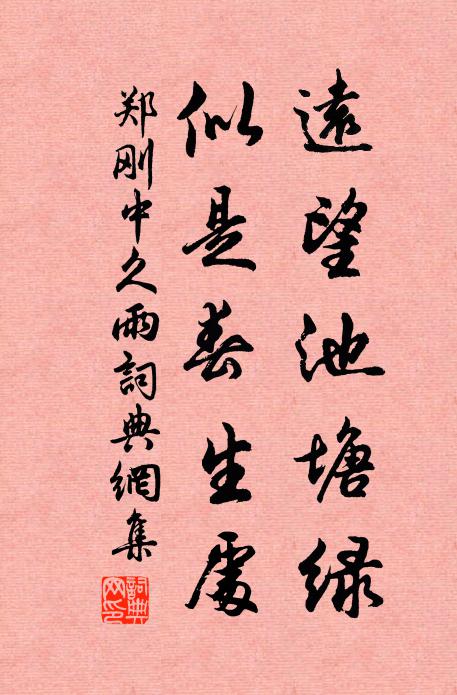 遠望池塘緑
似是春生處
郑刚中久雨詞典網集
詞典网印